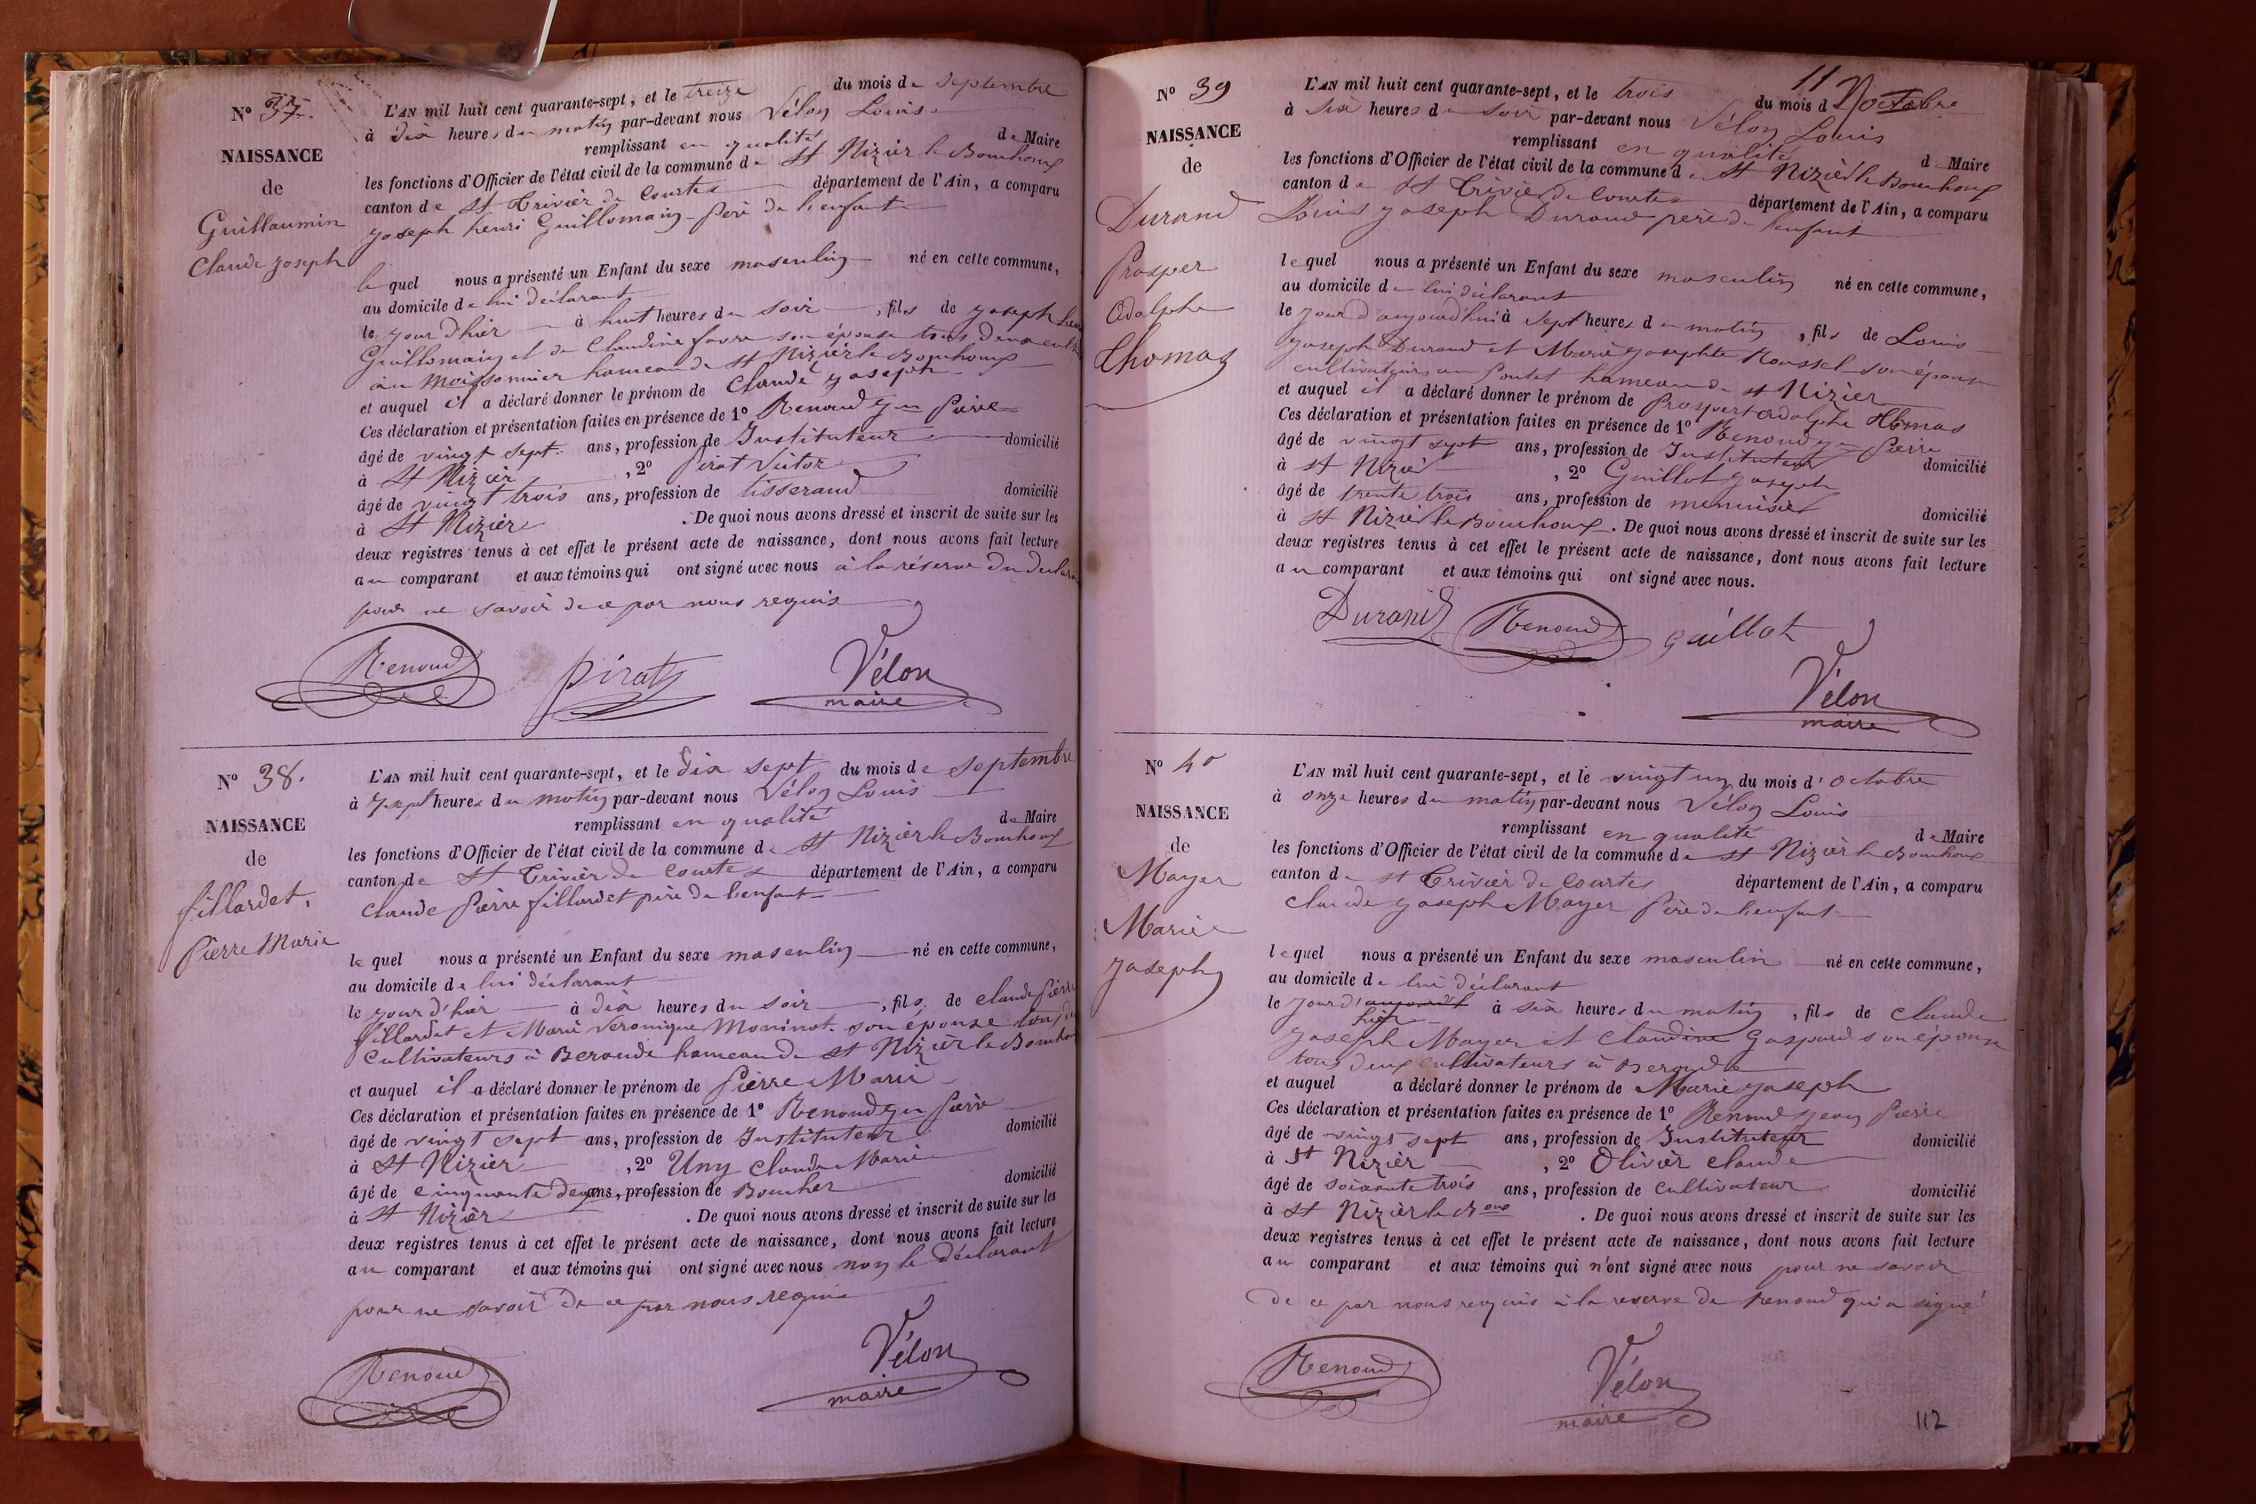 N° 37.
NAISSANCE
de
Guillaumin
Claude Joseph
L'AN mil huit cent quarante-sept, et le treize du mois de septembre
à dix heures du matin par-devant nous Vélon Louis
remplissant en qualité de Maire
les fonctions d'Officier de l'état civil de la commune de St Nizier le Bouchoux
canton de St Trivier de Courtes département de l'Ain, a comparu
Joseph henri Guillomain père de l'enfant
le quel nous a présenté un Enfant du sexe masculin né en cette commune,
au domicile de lui déclarant
le jour d'hier à huit heures du soir, fils de Joseph
Guillomain et de Claudine favre son épouse tous deux
au Moissonnier hameau de St Nizier le Bouchoux
et auquel il a déclaré donner le prénom de Claude Joseph
Ces déclaration et présentation faites en présence de 1° Renoud Jn Pierre
âgé de vingt sept ans, profession de Instituteur domicilié
à St Nizier, 2° Pirat Victor
âgé de vingt trois ans, profession de tisserand domicilié
à St Nizier. De quoi nous avons dressé et inscrit de suite sur les
deux registres tenus à cet effet le présent acte de naissance, dont nous avons fait lecture
au comparant et aux témoins qui ont signé avec nous à la réserve du
pour ne savoir de ce par nous requis
Renoud Pirat Vélon
maire
N° 38.
NAISSANCE
de
fillardet,
Pierre Marie
L'AN mil huit cent quarante-sept, et le dix sept du mois de septembre
à sept heures du matin par-devant nous Vélon Louis
remplissant en qualité de Maire
les fonctions d'Officier de l'état civil de la commune de St Nizier le Bouchoux
canton de St Trivier de Courtes département de l'Ain, a comparu
Claude Pierre fillardet père de l'enfant
le quel nous a présenté un Enfant du sexe masculin né en cette commune,
au domicile de lui déclarant
le jour d'hier à dix heures du soir, fils de Claude Pierre
fillardet et Marie Veronique Moninot son épouse tous
Cultivateurs à Beroude hameau de St Nizier le
et auquel il a déclaré donner le prénom de Pierre Marie
Ces déclaration et présentation faites en présence de 1° Renoud Jn Pierre
âgé de vingt sept ans, profession de Instituteur domicilié
à St Nizier, 2° Uny Claude Marie
âgé de cinquante deux ans, profession de Boucher domicilié
à St Nizier. De quoi nous avons dressé et inscrit de suite sur les
deux registres tenus à cet effet le présent acte de naissance, dont nous avons fait lecture
au comparant et aux témoins qui ont signé avec nous non le déclarant
pour ne savoir de ce par nous requis
Renoud Vélon
maire
N° 39
NAISSANCE
de
Durand
Prosper
Adolphe
thomas
L'AN mil huit cent quarante-sept, et le trois du mois d'octobre
à six heures du soir par-devant nous Vélon Louis
remplissant en qualité de Maire
les fonctions d'Officier de l'état civil de la commune de St Nizier le Bouchoux
canton de St Trivier de Courtes département de l'Ain, a comparu
Louis Joseph Durand père de l'enfant
lequel nous a présenté un Enfant du sexe masculin né en cette commune,
au domicile de lui déclarant
le jour d'aujourd'hui à sept heures du matin, fils de Louis
Joseph Durand et Marie Josephte Roussel son épouse
cultivateurs au Pontet hameau de St Nizier
et auquel il a déclaré donner le prénom de Prospert adolphe thomas
Ces déclaration et présentation faites en présence de 1° Renoud Jn Pierre
âgé de vingt sept ans, profession de Instituteur domicilié
à St Nizier, 2° Guillot Joseph
âgé de trente trois ans, profession de menuisier domicilié
à St Nizier le Bouchoux. De quoi nous avons dressé et inscrit de suite sur les
deux registres tenus à cet effet le présent acte de naissance, dont nous avons fait lecture
au comparant et aux témoins qui ont signé avec nous.
Durand Renoud Guillot
Vélon
maire
N° 40
NAISSANCE
de
Mayer
Marie
Joseph
L'AN mil huit cent quarante-sept, et le vingt un du mois d'octobre
à onze heures du matin par-devant nous Vélon Louis
remplissant en qualité de Maire
les fonctions d'Officier de l'état civil de la commune de St Nizier le Bouchoux
canton de St Trivier de Courtes département de l'Ain, a comparu
Claude Joseph Mayer Père de l'enfant
lequel nous a présenté un Enfant du sexe masculin né en cette commune,
au domicile de lui déclarant
le jour d'aujourd'h à six heures du matin, fils de Claude
hier
Joseph Mayer et Claudine Gaspard son épouse
tous deux cultivateurs à Beroude
et auquel a déclaré donner le prénom de Marie Joseph
Ces déclaration et présentation faites en présence de 1° Renoud Jean Pierre
âgé de vingt sept ans, profession de Instituteur domicilié
à St Nizier, 2° Olivier Claude
âgé de soixante trois ans, profession de Cultivateur domicilié
à St Nizier le Boux. De quoi nous avons dressé et inscrit de suite sur les
deux registres tenus à cet effet le présent acte de naissance, dont nous avons fait lecture
au comparant et aux témoins qui n'ont signé avec nous pour ne savoir
de ce par nous requis à la reserve de Renoud qui a signé
Renoud Vélon
maire
112